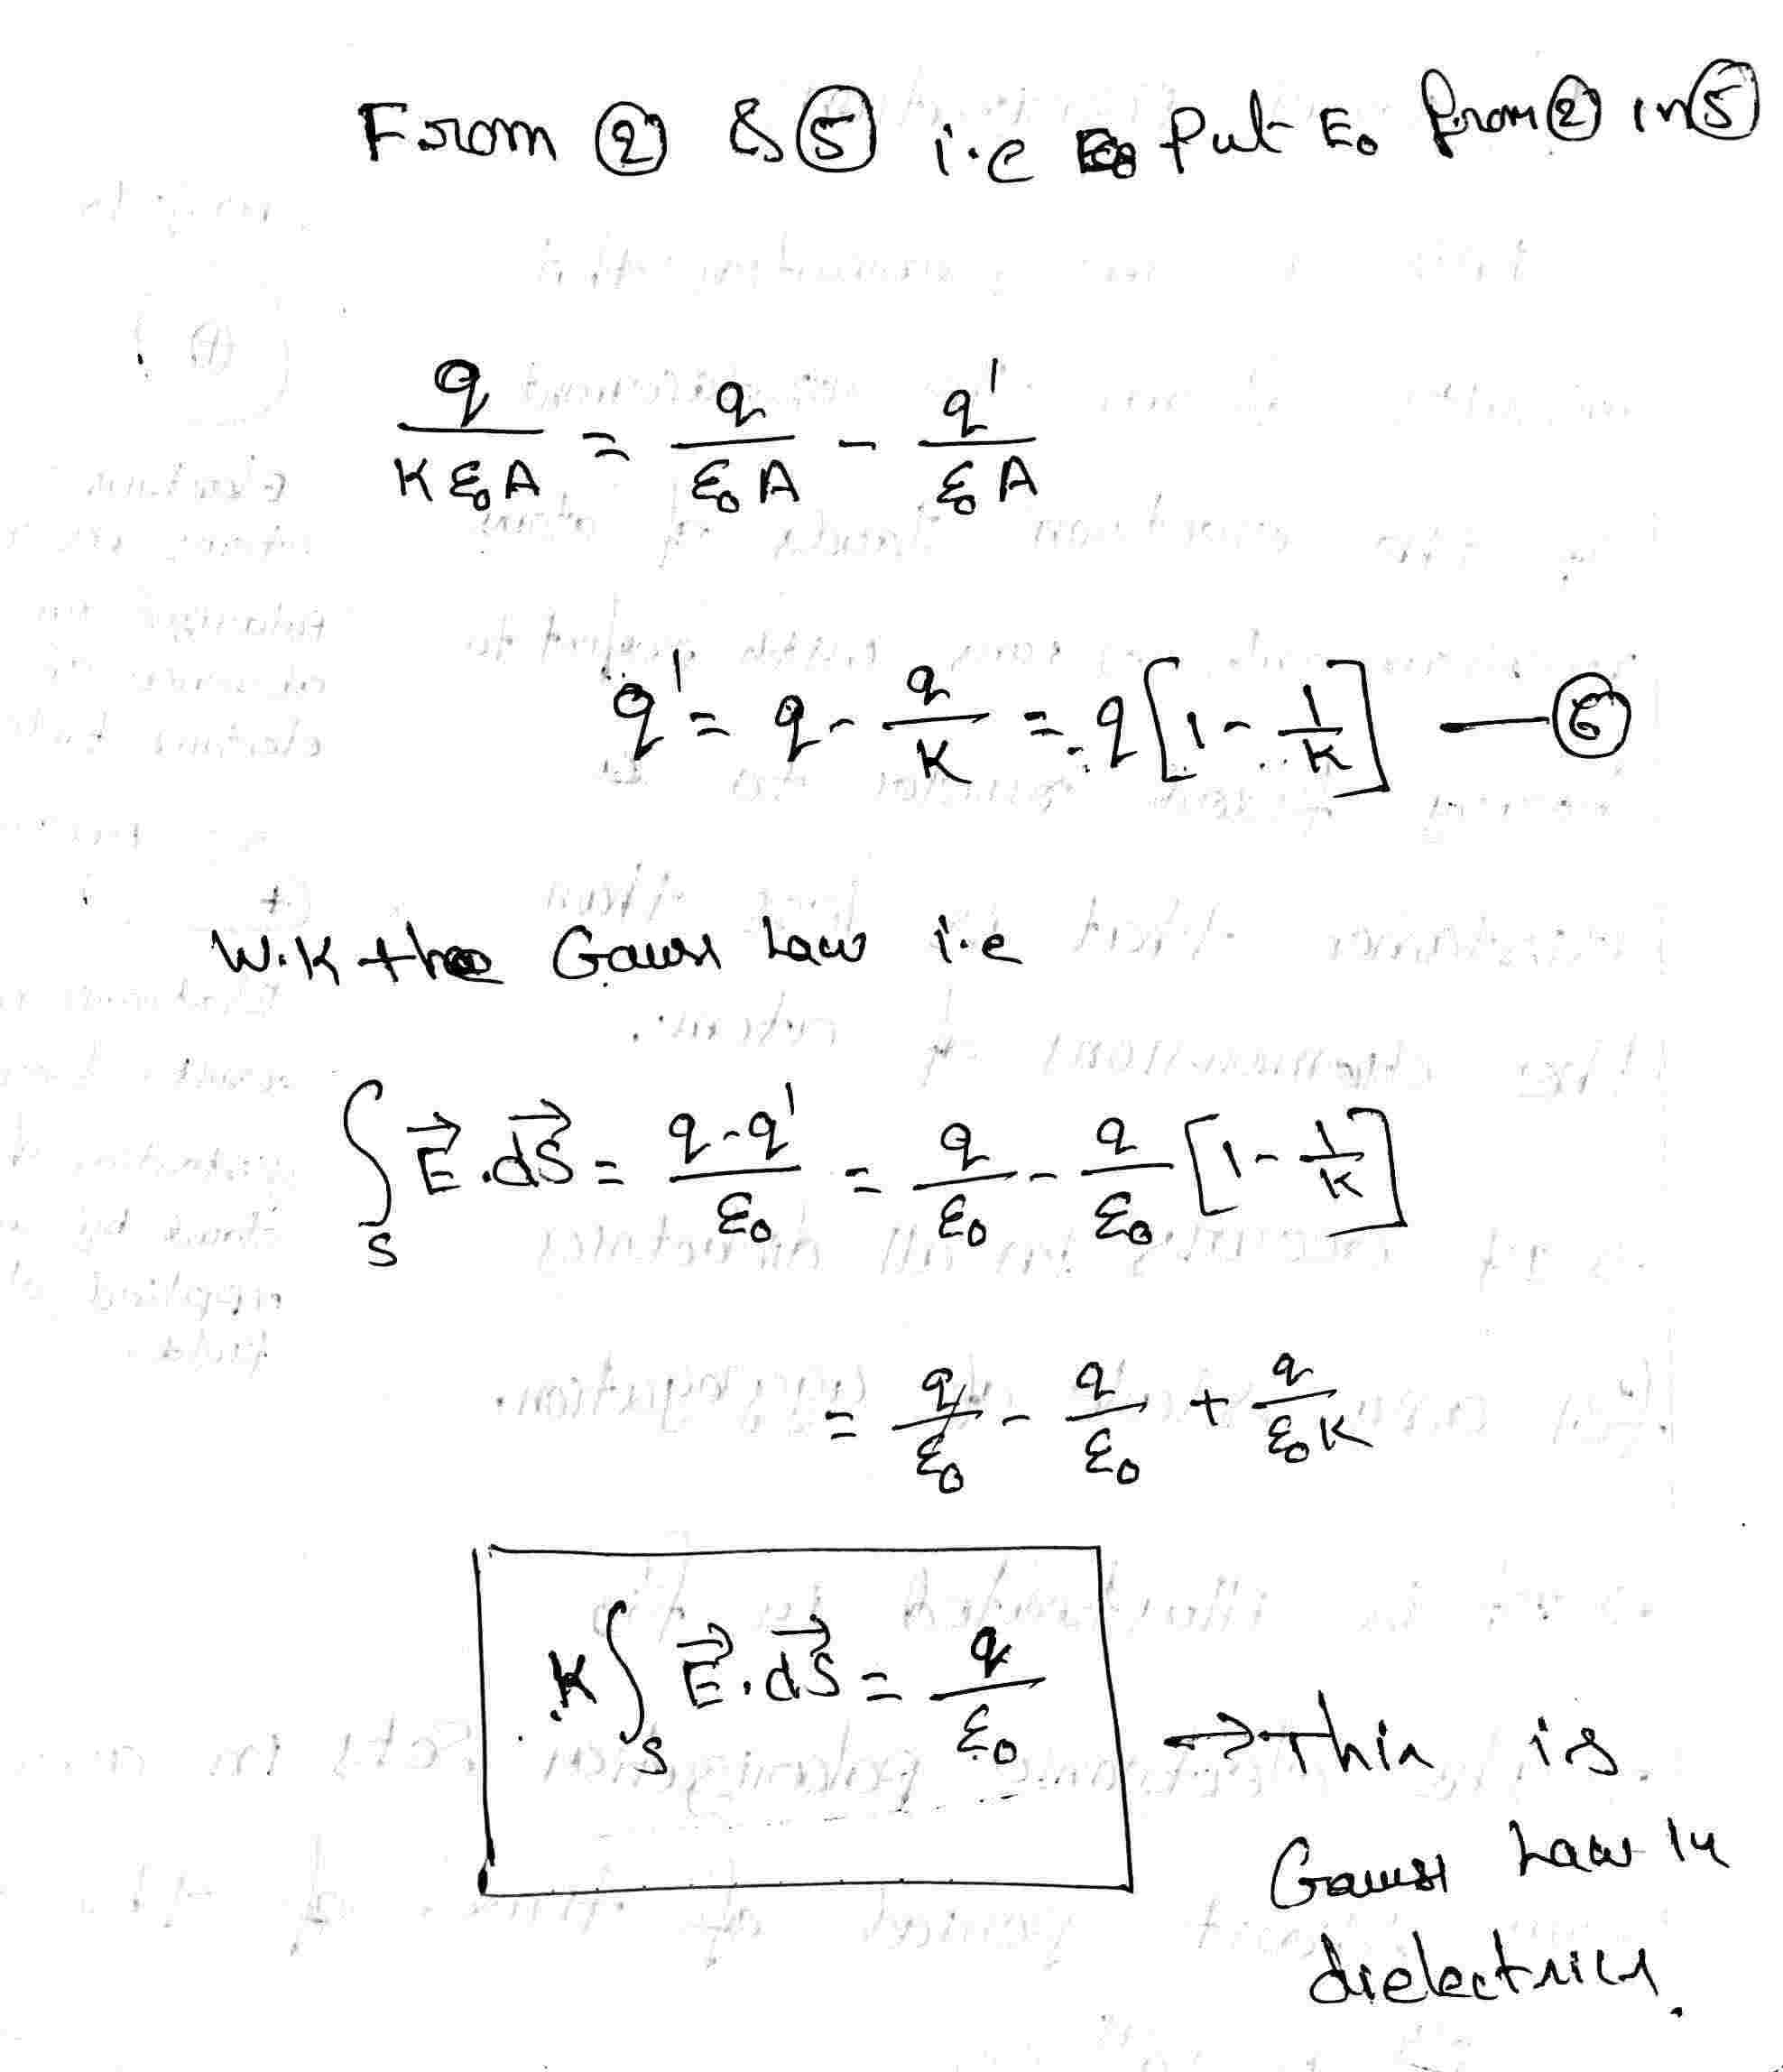 From ② & ⑤ i.e Put E₀ from ② in ⑤
q/Kε₀A = q/ε₀A - q'/ε₀A
q' = q - q/K = q[1 - 1/K] — ⑥
W.K the Gauss Law i.e
∫S E⃗.dS⃗ = q-q'/ε₀ = q/ε₀ - q/ε₀ [1 - 1/K]
= q/ε₀ - q/ε₀ + q/ε₀K
K∫S E⃗.dS⃗ = q/ε₀ → This is
Gauss Law in
dielectrics.